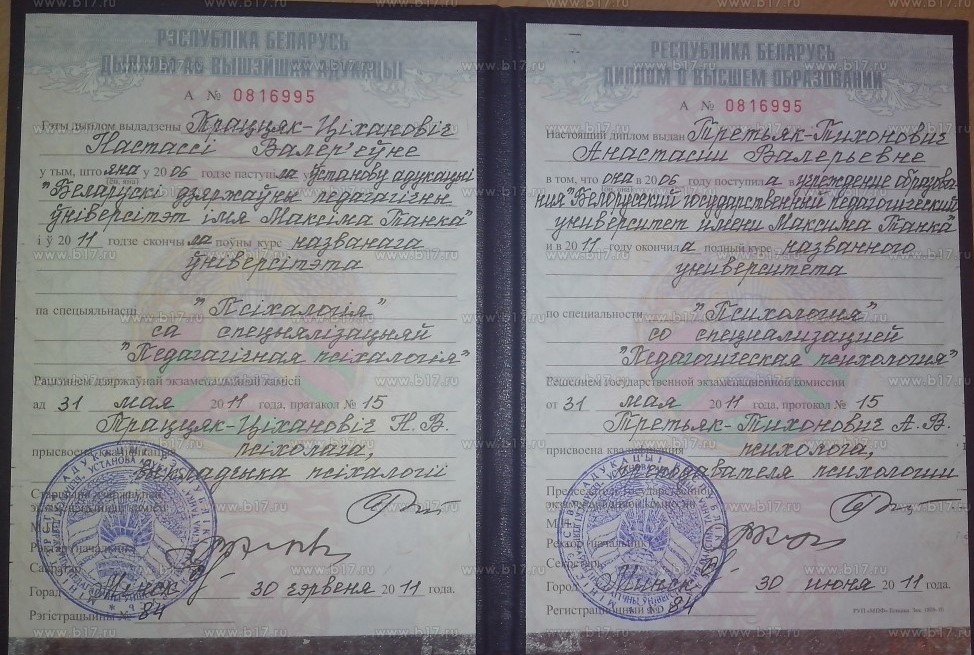 РЭСПУБЛІКА БЕЛАРУСЬ
ДЫПЛОМ АБ ВЫШЭЙШАЙ АДУКАЦЫІ
А № 0816995
Гэты дыплом выдадзены Траццяк-Ціхановіч
Настассі Валер'еўне
у тым, што яна у 2006 годзе паступіла ва ўстанову адукацыі
"Беларускі дзяржаўны педагагічны
ўніверсітэт імя Максіма Танка"
і ў 2011 годзе скончыла поўны курс названага
ўніверсітэта
па спецыяльнасці "Псіхалогія"
са спецыялізацыяй
"Педагагічная псіхалогія"
Рашэннем дзяржаўнай экзаменацыйнай камісіі
ад 31 мая 2011 года, пратакол № 15
Траццяк-Ціхановіч Н. В.
прысвоена кваліфікацыя псіхолага,
выкладчыка псіхалогіі
Старшыня дзяржаўнай
экзаменацыйнай камісіі
М.П.
Рэктар (начальнік)
Сакратар
Горад Мінск 30 чэрвеня 2011 года.
Рэгістрацыйны № 84
РЕСПУБЛИКА БЕЛАРУСЬ
ДИПЛОМ О ВЫСШЕМ ОБРАЗОВАНИИ
А № 0816995
Настоящий диплом выдан Третьяк-Тихонович
Анастасии Валерьевне
в том, что она в 2006 году поступила в учреждение образова-
ния "Белорусский государственный педагогический
университет имени Максима Танка"
и в 2011 году окончила полный курс названного
университета
по специальности "Психология"
со специализацией
"Педагогическая психология"
Решением государственной экзаменационной комиссии
от 31 мая 2011 года, протокол № 15
Третьяк-Тихонович А. В.
присвоена квалификация психолога,
преподавателя психологии
Председатель государственной
экзаменационной комиссии
М.П.
Ректор (начальник)
Секретарь
Город Минск 30 июня 2011 года.
Регистрационный № 84
www.b17.ru